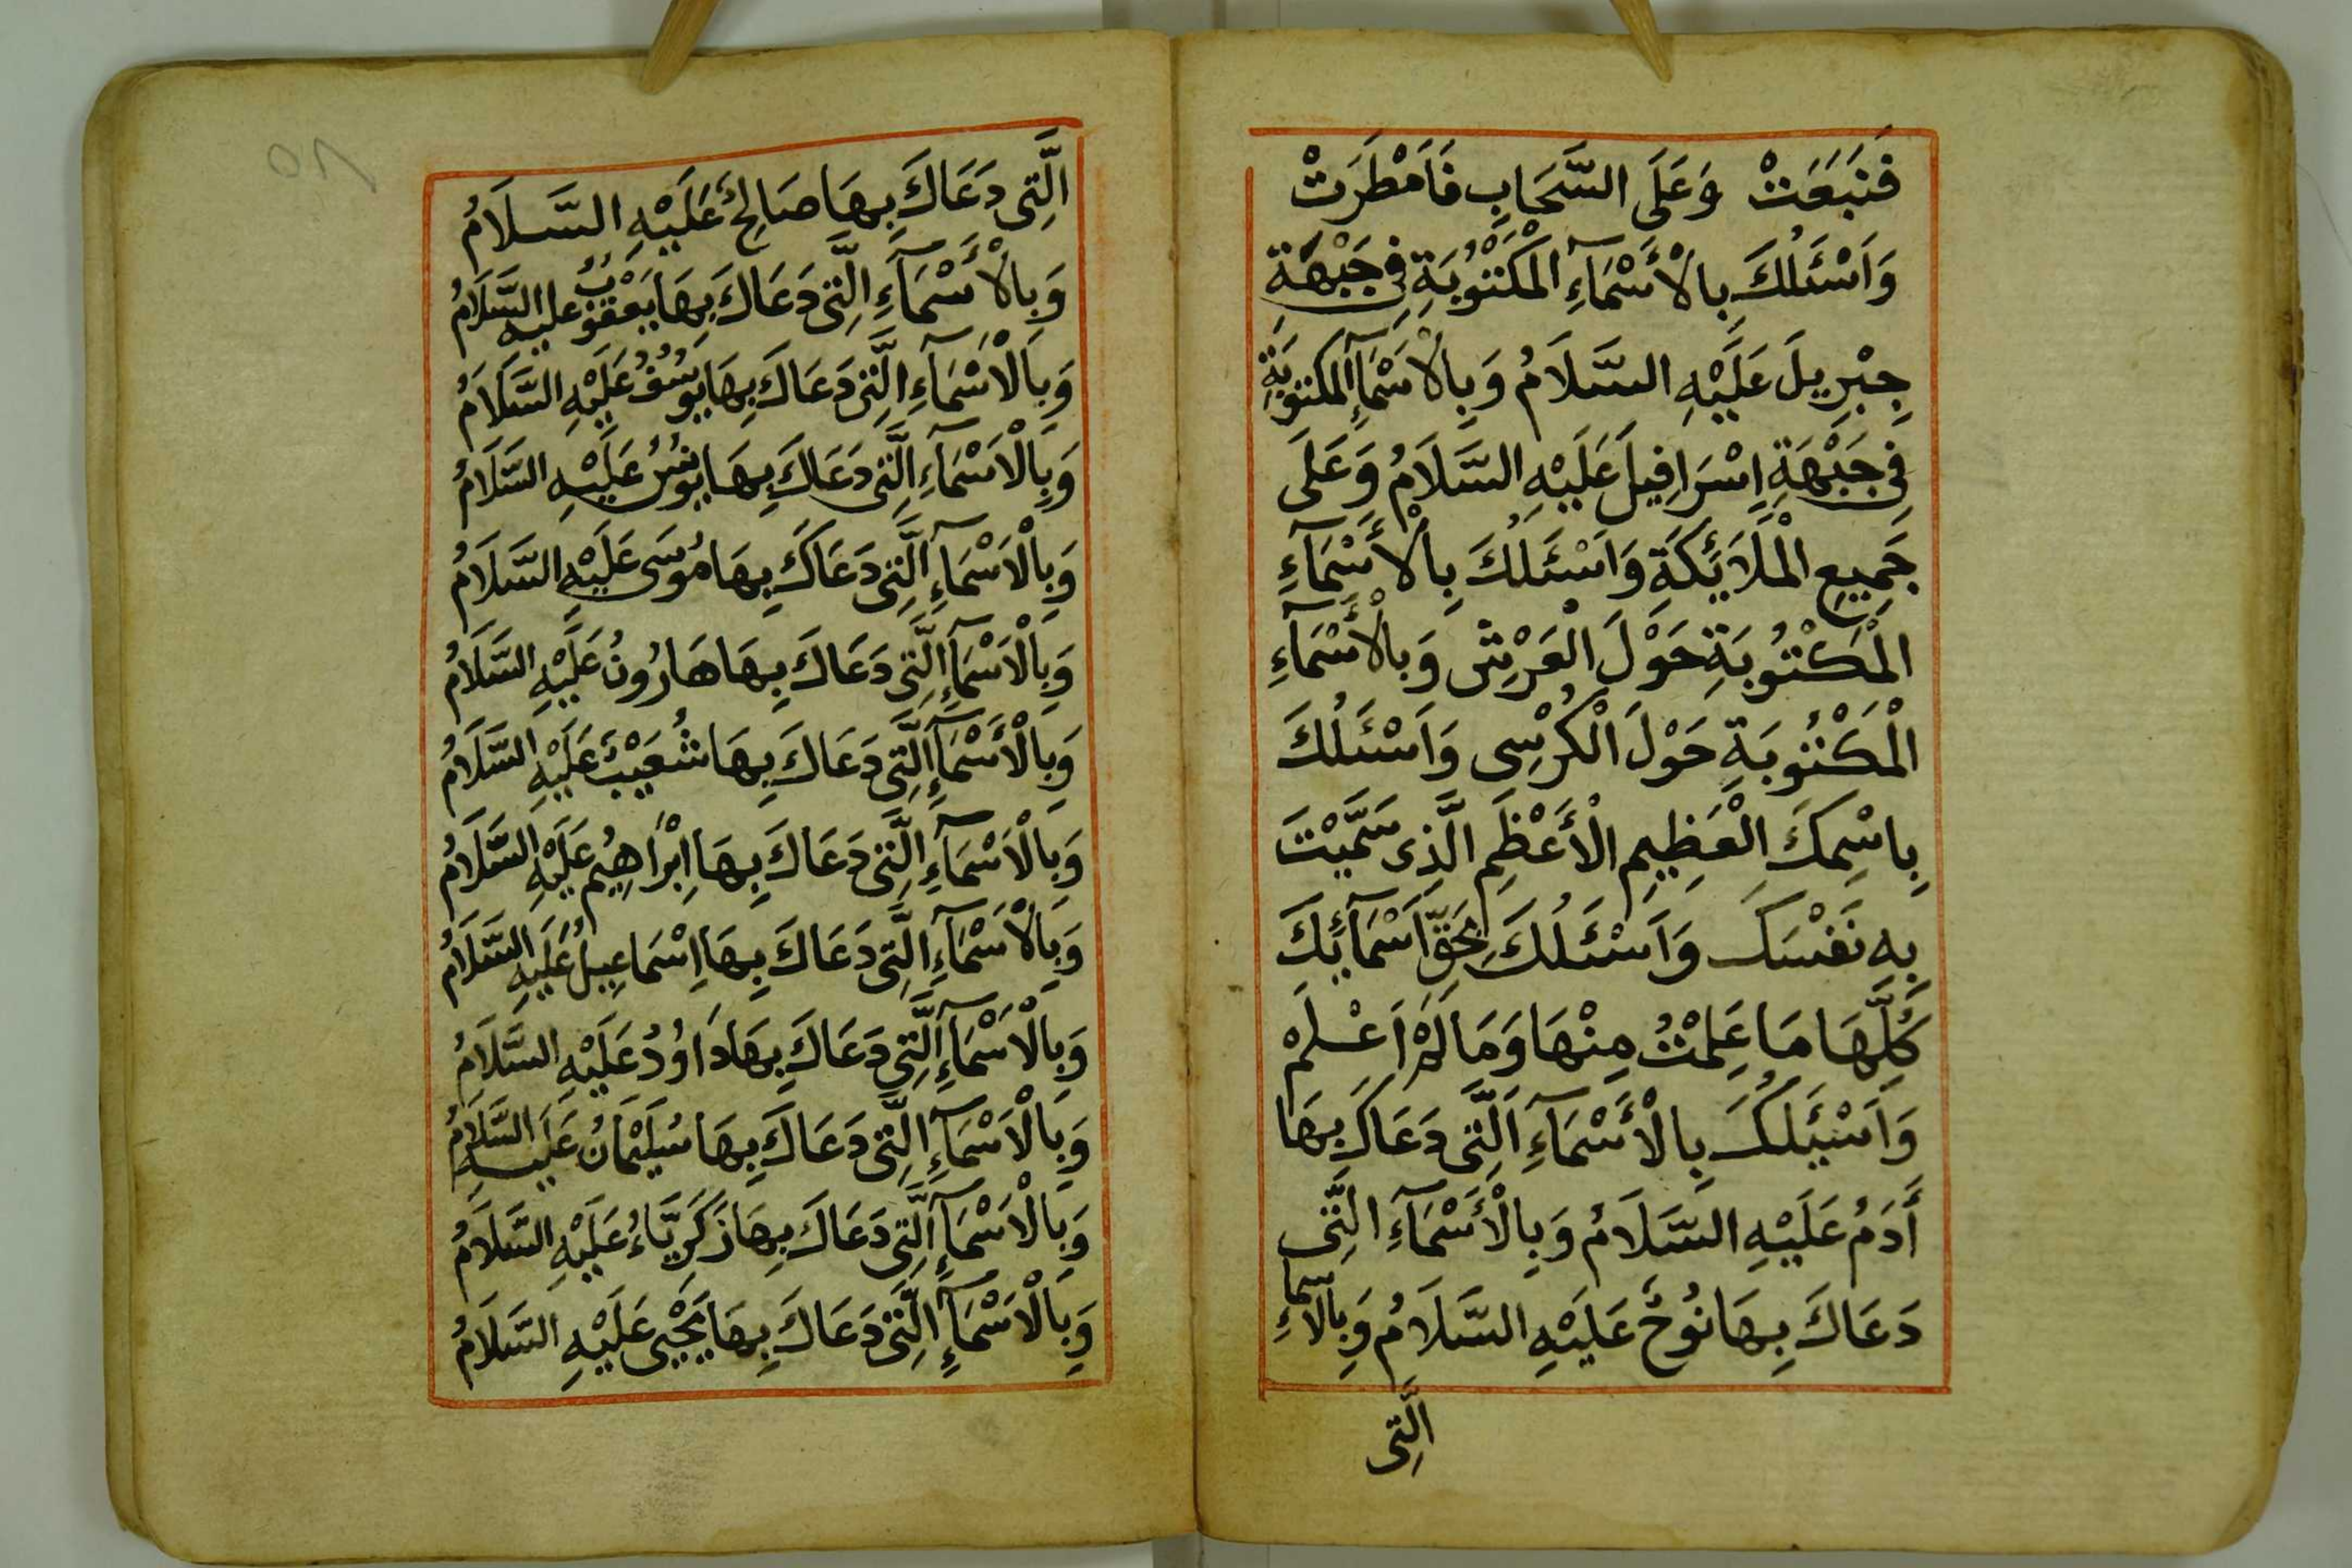 فَنَبَعَتْ وَعَلَى السَّحَابِ فَاَمْطَرَتْ
وَاَسْئَلُكَ بِالْأَسْمَآءِ الْمَكْتُوبَةِ فِى جَبْهَةِ
جِبْرِيلَ عَلَيْهِ السَّلَامُ وَبِالْاَسْمَآءِ المكتوبَةِ
فِى جَبْهَةِ اِسْرَافِيلَ عَلَيْهِ السَّلَامُ وَعَلَى
جَمِيعِ الْمَلَائِكَةِ وَاَسْئَلُكَ بِالْأَسْمَآءِ
الْمَكْتُوبَةِ حَوْلَ الْعَرْشِ وَبِالْأَسْمَآءِ
الْمَكْتُوبَةِ حَوْلَ الْكُرْسِى وَاَسْئَلُكَ
بِاسْمِكَ الْعَظِيمِ الْأَعْظَمِ الَّذِى سَمَّيْتَ
بِهِ نَفْسَكَ وَاَسْئَلُكَ بِحَقِّ اَسْمَآئِكَ
كُلِّهَا مَا عَلِمْتُ مِنْهَا وَمَا لَمْ اَعْلَمْ
وَاَسْئَلُكَ بِالْأَسْمَآءِ الَّتِى دَعَاكَ بِهَا
أَدَمُ عَلَيْهِ السَّلَامُ وَبِالْأَسْمَآءِ الَّتِى
دَعَاكَ بِهَا نُوحٌ عَلَيْهِ السَّلَامُ وَبِالاسمآءِ
الَّتِى
٥٨
الَّتِى دَعَاكَ بِهَا صَالِحٌ عَلَيْهِ السَّلَامُ
وَبِالْأَسْمَآءِ الَّتِى دَعَاكَ بِهَا يَعْقُوبُ عليه السَّلَامُ
وَبِالْاَسْمَآءِ الَّتِى دَعَاكَ بِهَا يُوسُفُ عَلَيْهِ السَّلَامُ
وَبِالْاَسْمَآءِ الَّتِى دَعَاكَ بِهَا يُونُسُ عَلَيْهِ السَّلَامُ
وَبِالْاَسْمَآءِ الَّتِى دَعَاكَ بِهَا مُوسَى عَلَيْهِ السَّلَامُ
وَبِالْاَسْمَآءِ الَّتِى دَعَاكَ بِهَا هَارُونُ عَلَيْهِ السَّلَامُ
وَبِالْأَسْمَآءِ الَّتِى دَعَاكَ بِهَا شُعَيْبٌ عَلَيْهِ السَّلَامُ
وَبِالْاَسْمَآءِ الَّتِى دَعَاكَ بِهَا اِبْرَاهِيمُ عَلَيْهِ السَّلَامُ
وَبِالْاَسْمَآءِ الَّتِى دَعَاكَ بِهَا اِسْمَاعِيلُ عَلَيْهِ السَّلَامُ
وَبِالْاَسْمَآءِ الَّتِى دَعَاكَ بِهَا دَاوُدُ عَلَيْهِ السَّلَامُ
وَبِالْاَسْمَآءِ الَّتِى دَعَاكَ بِهَا سُلَيْمَانُ عَلَيْهِ السَّلَامُ
وَبِالْاَسْمَآءِ الَّتِى دَعَاكَ بِهَا زَكَرِيَّاءُ عَلَيْهِ السَّلَامُ
وَبِالْاَسْمَآءِ الَّتِى دَعَاكَ بِهَا يَحْيَى عَلَيْهِ السَّلَامُ